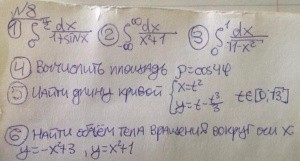 №8
① ∫₀^{π/2} dx/(1+sinx) ② ∫_{-∞}^{∞} dx/(x²+1) ③ ∫₀¹ dx/√(1-x²)
④ Вычислить площадь ρ=cos4φ
⑤ Найти длину кривой { x=t² y=t-t³/3 t∈[0,√3]
⑥ Найти объём тела вращения вокруг оси X.
y=-x²+3, y=x²+1